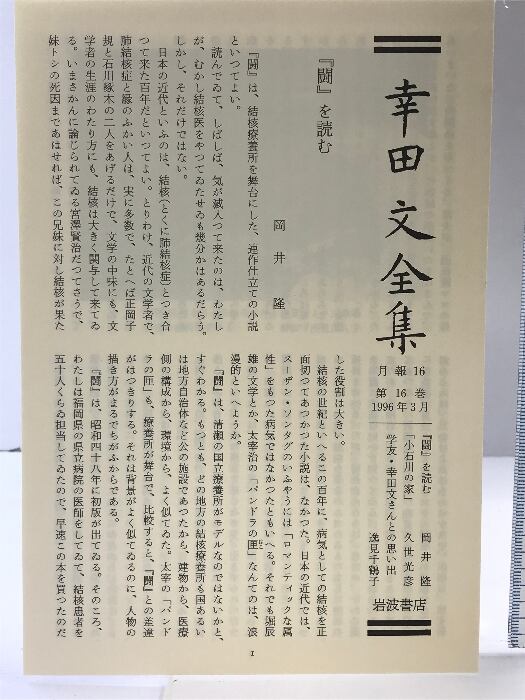 幸田文全集
月報16
第16巻
1996年3月
『闘』を読む　岡井隆
「小石川の家」　久世光彦
学友・幸田文さんとの思い出　逸見千鶴子
岩波書店
『闘』を読む
岡井隆
『闘』は、結核療養所を舞台にした、連作仕立ての小説
といつてよい。
読んでゐて、しばしば、気が滅入つて来たのは、わたし
が、むかし結核医をやつてゐたせゐも幾分かはあるだらう。
しかし、それだけではない。
日本の近代といふのは、結核(とくに肺結核症)とつき合
つて来た百年だといつてよい。とりわけ、近代の文学者で、
肺結核症と縁のふかい人は、実に多数で、たとへば正岡子
規と石川啄木の二人をあげるだけで、文学の中味にも、文
学者の生涯のわたり方にも、結核は大きく関与して来てゐ
る。いまさかんに論じられてゐる宮澤賢治だつてさうで、
妹トシの死因まであはせれば、この兄妹に対し結核が果た
した役割は大きい。
結核の世紀といへるこの百年に、病気としての結核を正
面切つてあつかつた小説は、なかつた。日本の近代では、
スーザン・ソンタグのいふやうには「ロマンティックな属
性」をもつた病気ではなかつたともいへる。それでも堀辰
雄の文学とか、太宰治の「パンドラの匣」なんてのは、浪
漫的といへようか。
『闘』は、清瀬の国立療養所がモデルなのではないかと、
すぐわかる。もつとも、どの地方の結核療養所も国あるい
は地方自治体など公の施設であつたから、建物から、医療
側の構成から、環境から、よく似てゐた。太宰の「パンド
ラの匣」も、療養所が舞台で、比較すると、『闘』との差違
がはつきりする。それは背景がよく似てゐるのに、人物の
描き方がまるでちがふからである。
『闘』は、昭和四十八年に初版が出てゐる。そのころ、
わたしは福岡県の県立病院の医師をしてゐて、結核患者を
五十人くらゐ担当してゐたので、早速この本を買つたのだ
1